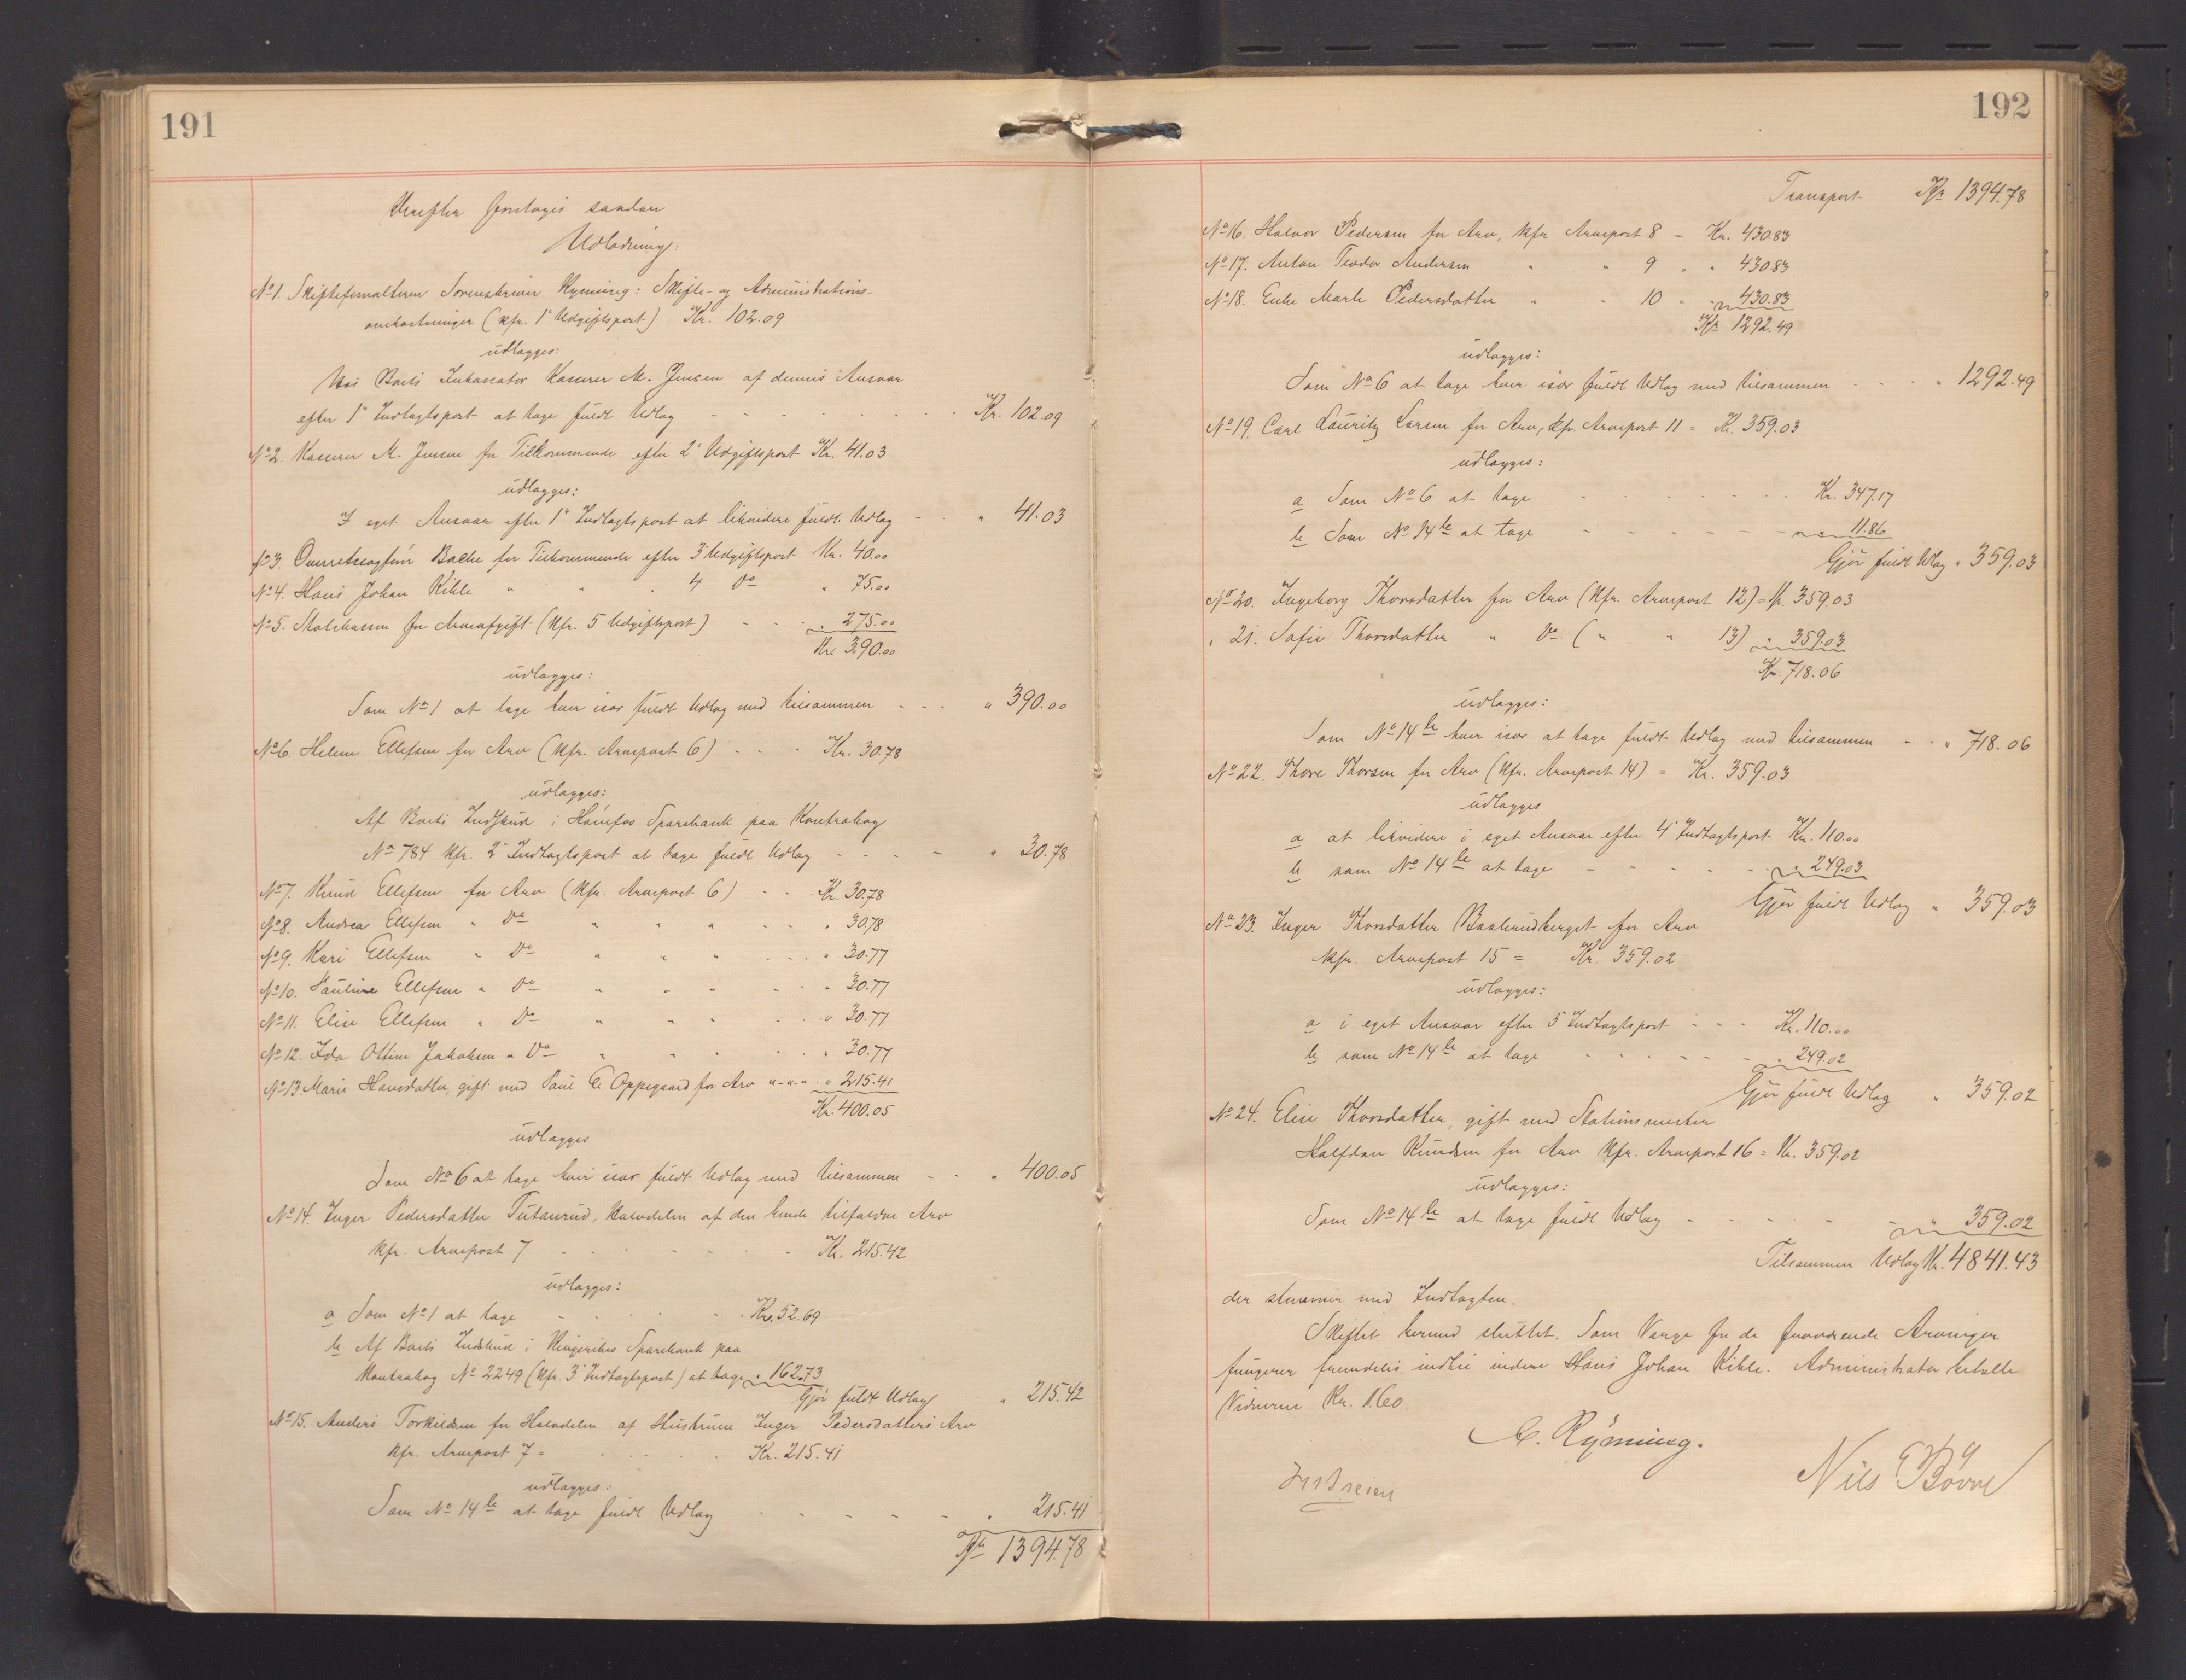 191
Derefter foretoges saadan
Udlodning:
No 1. Skifteforvalteren Sorenskriver Rynning: Skifte- og Administrations-
omkostninger (kfr. 1ste Udgiftspost) Kr. 102.09
udlægges:
Hos Boets Inkassator Kasserer M. Jensen af dennes Ansvar
efter 1ste Indtægtspost at tage fuldt Udlæg - - - - - Kr. 102.09
No 2. Kasserer M. Jensen for Tilkommende efter 2den Udgiftspost Kr. 41.03
udlægges:
I eget Ansvar efter 1ste Indtægtspost at likvidere fuldt Udlæg - - " 41.03
No 3. Overretssagfører Bache for Tilkommende efter 3die Udgiftspost Kr. 40.00
No 4. Hans Johan Kihle " " " 4 Do " 75.00
No 5. Statskassen for Arveafgift (kfr. 5 Udgiftspost) - - - " 275.00
Kr. 390.00
udlægges:
Som No 1 at tage hver især fuldt Udlæg med tilsammen - - - " 390.00
No 6. Helene Ellefsen for Arv (kfr. Arvepost 6) - - - Kr. 30.78
udlægges:
Af Boets Indskud i Hønefos Sparebank paa Kontrabog
No 784 kfr. 2den Indtægtspost at tage fuldt Udlæg - - - - " 30.78
No 7. Knud Ellefsen for Arv (kfr. Arvepost 6) - - Kr. 30.78
No 8. Andrea Ellefsen " Do " " " - - " 30.78
No 9. Kari Ellefsen " Do " " " - - " 30.77
No 10. Pauline Ellefsen " Do " " " - - " 30.77
No 11. Elise Ellefsen " Do " " " - - " 30.77
No 12. Ida Ottine Jakobsen " Do " " " - - " 30.77
No 13. Marie Hansdatter, gift med Paul E. Oppegaard for Arv "-"-" " 215.41
Kr. 400.05
udlægges
Som No 6 at tage hver især fuldt Udlæg med tilsammen - - - " 400.05
No 14. Inger Pedersdatter Tutanrud, Halvdelen af den hende tilfaldne Arv
kfr. Arvepost 7 - - - - - - Kr. 215.42
udlægges:
a Som No 1 at tage - - - - Kr. 52.69
b Af Boets Indskud i Ringerikes Sparebank paa
Kontrabog No 2249 (kfr. 3die Indtægtspost) at tage " 162.73
Gjør fuldt Udlæg " 215.42
No 15. Anders Torkildsen for Halvdelen af Hustruen Inger Pedersdatters Arv
kfr. Arvepost 7 = - - - - Kr. 215.41
udlægges:
Som No 14 b at tage fuldt Udlæg - - - - - " 215.41
Kr. 1394.78
192
Transport Kr. 1394.78
No 16. Halvor Pedersen for Arv, kfr. Arvepost 8 - Kr. 430.83
No 17. Anton Teodor Andersen " " 9 " " 430.83
No 18. Enke Marte Pedersdatter " " 10 " " 430.83
Kr. 1292.49
udlægges:
Som No 6 at tage hver især fuldt Udlæg med tilsammen - - - " 1292.49
No 19. Carl Lauritz Larsen for Arv, kfr. Arvepost 11 = Kr. 359.03
udlægges:
a Som No 6 at tage - - - - - - Kr. 347.17
b Som No 14 b at tage - - - - - - " 11.86
Gjør fuldt Udlæg " 359.03
No 20. Ingeborg Thorsdatter for Arv (kfr. Arvepost 12) = Kr. 359.03
" 21. Sofie Thorsdatter " Do ( " " 13) " 359.03
Kr. 718.06
udlægges:
Som No 14 b hver især at tage fuldt Udlæg med tilsammen - - " 718.06
No 22. Thore Thorsen for Arv (kfr. Arvepost 14) = Kr. 359.03
udlægges
a at likvidere i eget Ansvar efter 4de Indtægtspost Kr. 110.00
b som No 14 b at tage - - - - - " 249.03
Gjør fuldt Udlæg " 359.03
No 23. Inger Thorsdatter Baalerudberget for Arv
kfr. Arvepost 15 = Kr. 359.02
udlægges:
a i eget Ansvar efter 5 Indtægtspost - - - Kr. 110.00
b som No 14 b at tage - - - - - " 249.02
Gjør fuldt Udlæg " 359.02
No 24. Elise Thorsdatter, gift med Stationsmester
Halfdan Knudsen for Arv kfr. Arvepost 16 = Kr. 359.02
udlægges:
Som No 14 b at tage fuldt Udlæg - - - - - " 359.02
Tilsammen Udlæg Kr. 4841.43
der stemmer med Indtægten.
Skiftet hermed sluttet. Som Værge for de fraværende Arvinger
fungerer fremdeles indtil videre Hans Johan Kihle. Administrator betalte
Vidnerne Kr. 1.60.
C. Rynning.
Nils Bøvre